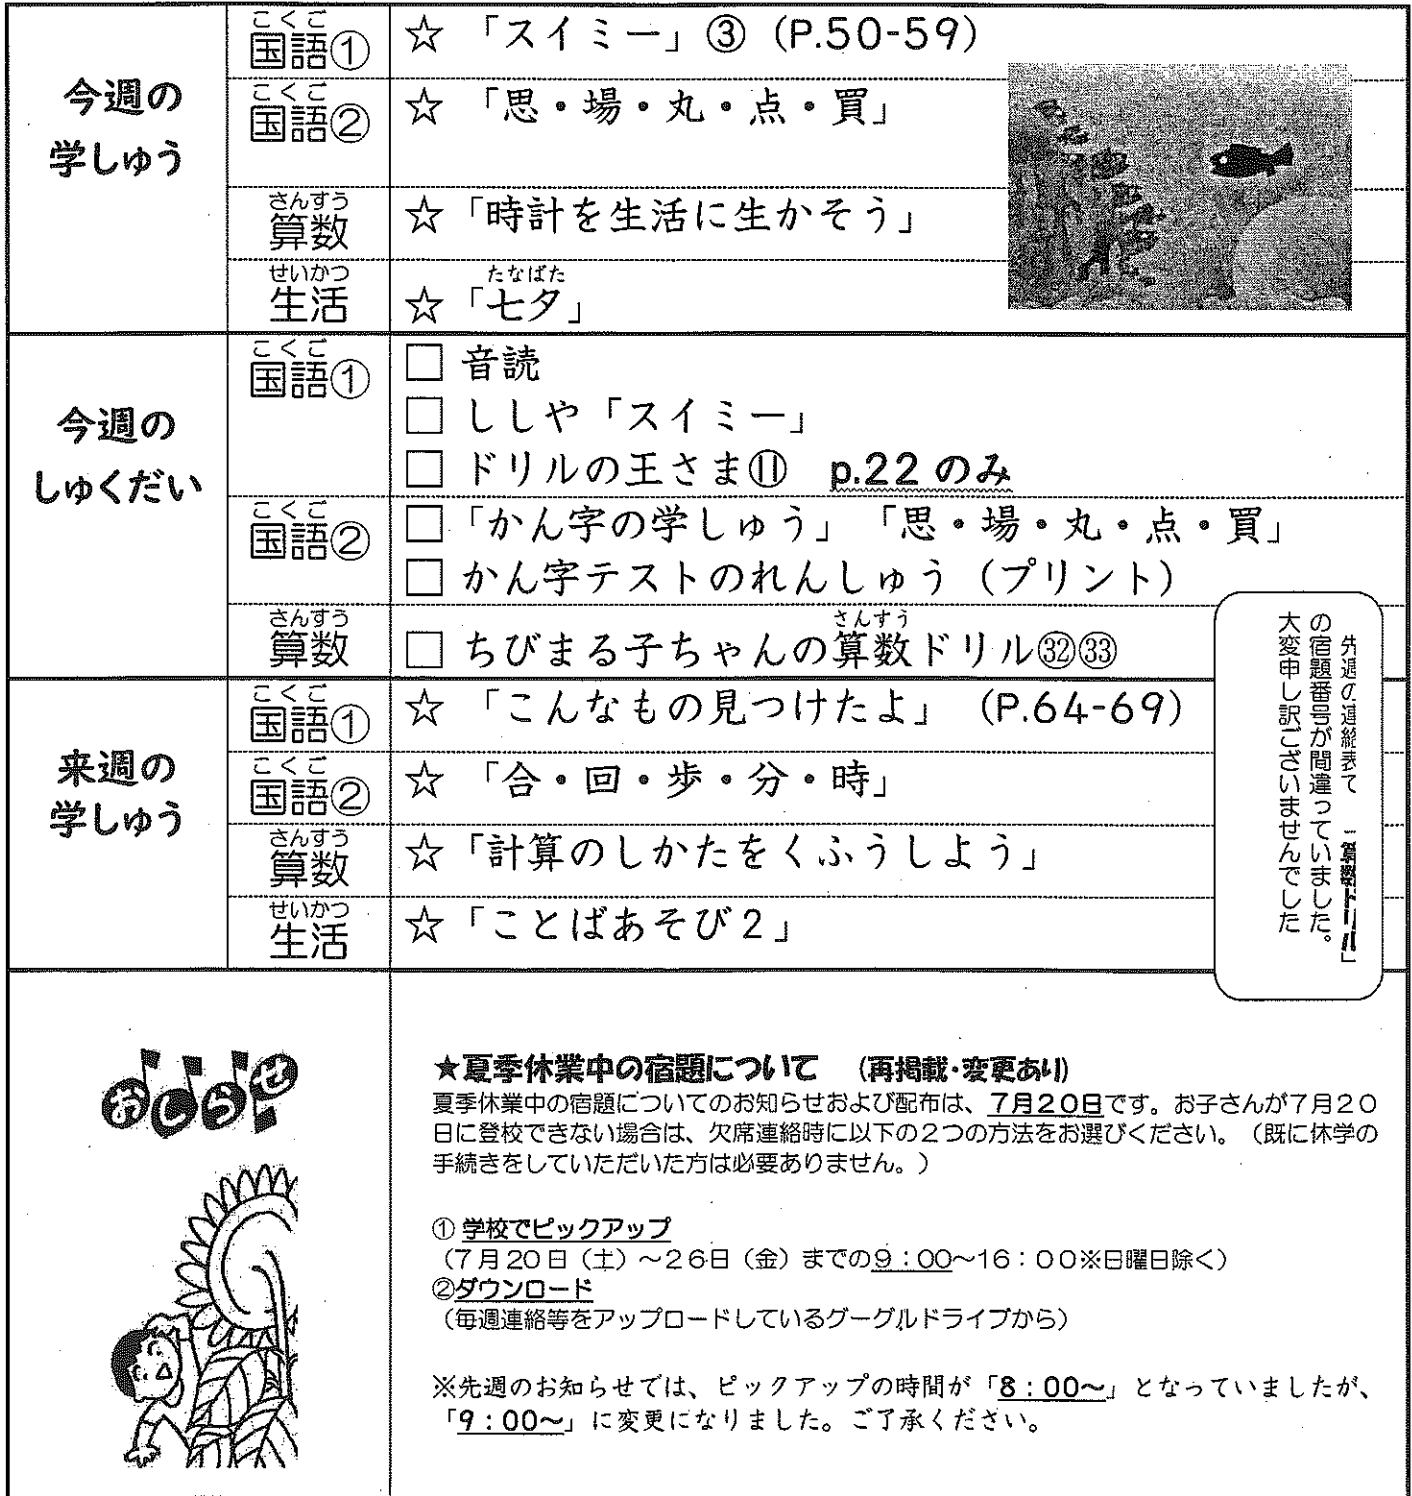 今週の
学しゅう
こくご
国語①
☆ 「スイミー」③ (P.50-59)
こくご
国語②
☆ 「思・場・丸・点・買」
さんすう
算数
☆「時計を生活に生かそう」
せいかつ
生活
たなばた
☆「七夕」
今週の
しゅくだい
こくご
国語①
□ 音読
□ ししや「スイミー」
□ ドリルの王さま⑪ p.22 のみ
こくご
国語②
□「かん字の学しゅう」「思・場・丸・点・買」
□ かん字テストのれんしゅう（プリント）
さんすう
算数
さんすう
□ ちびまる子ちゃんの算数ドリル㉜㉝
来週の
学しゅう
こくご
国語①
☆ 「こんなもの見つけたよ」 (P.64-69)
こくご
国語②
☆ 「合・回・歩・分・時」
さんすう
算数
☆「計算のしかたをくふうしよう」
せいかつ
生活
☆「ことばあそび２」
先週の連絡表で 「算数ドリル」
の宿題番号が間違っていました。
大変申し訳ございませんでした
おしらせ
★夏季休業中の宿題について （再掲載・変更あり）
夏季休業中の宿題についてのお知らせおよび配布は、７月２０日です。お子さんが７月２０
日に登校できない場合は、欠席連絡時に以下の２つの方法をお選びください。（既に休学の
手続きをしていただいた方は必要ありません。）
① 学校でピックアップ
（７月 20 日（土）～２６日（金）までの９：００～１６：００※日曜日除く）
②ダウンロード
（毎週連絡等をアップロードしているグーグルドライブから）
※先週のお知らせでは、ピックアップの時間が「８：００～」となっていましたが、
「９：００～」に変更になりました。ご了承ください。